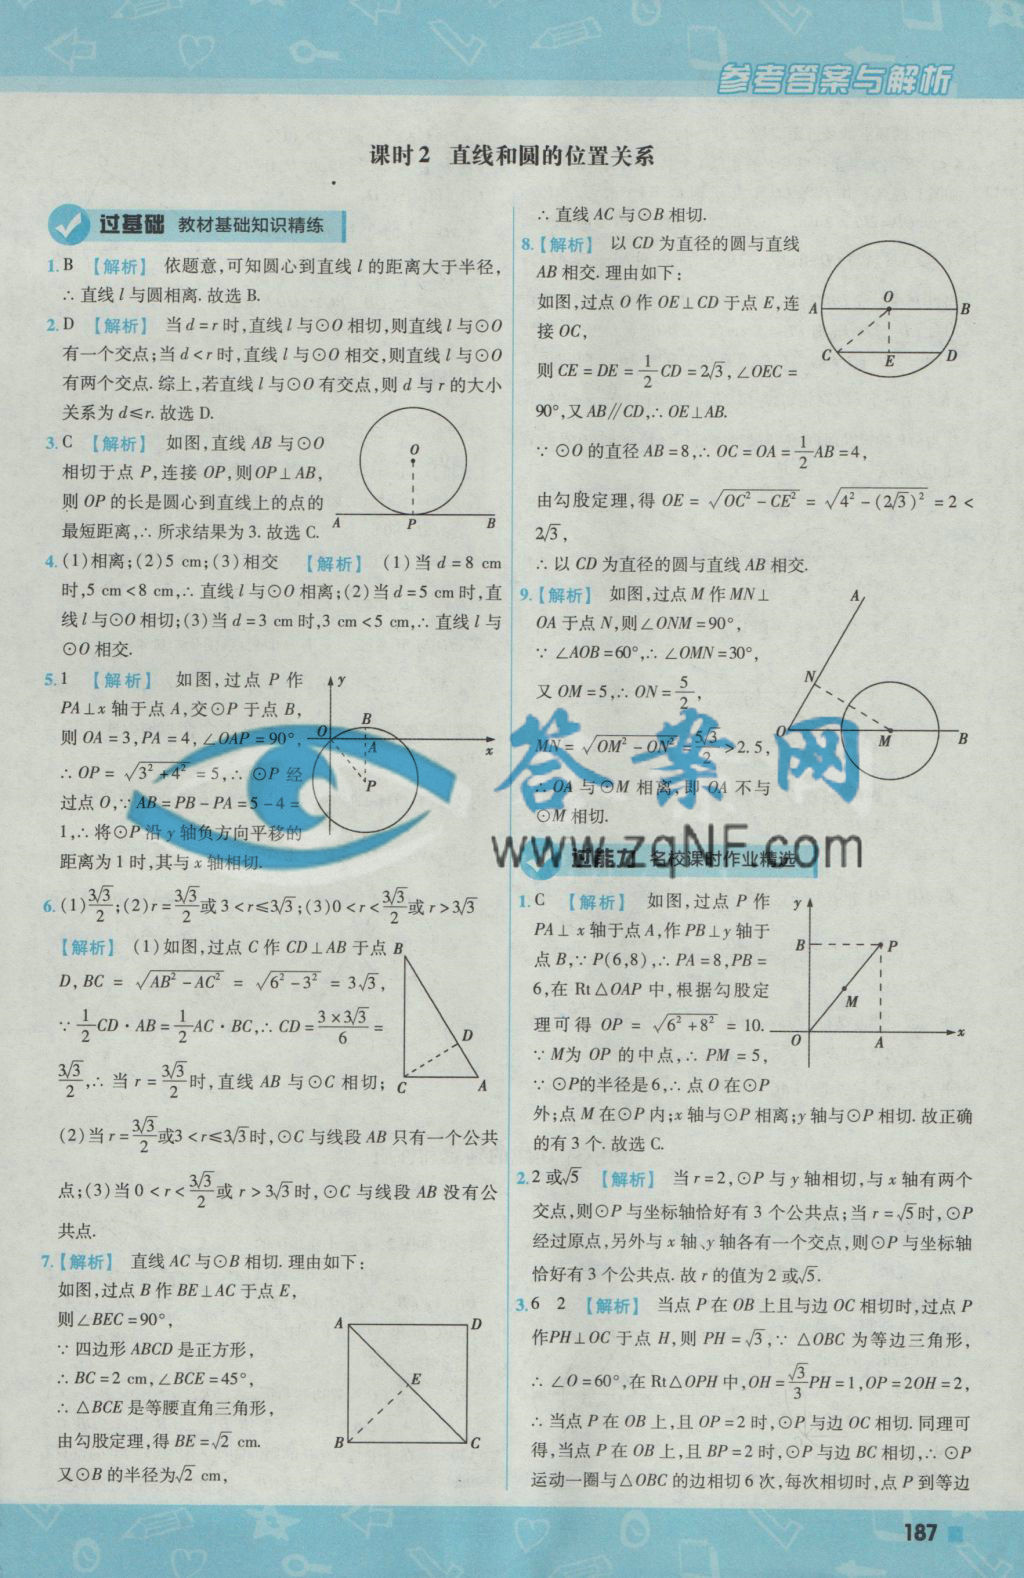 参考答案与解析
课时2 直线和圆的位置关系
过基础 教材基础知识精练
1.B 【解析】 依题意,可知圆心到直线l的距离大于半径,
∴直线l与圆相离.故选B.
2.D 【解析】 当d=r时,直线l与⊙O相切,则直线l与⊙O
有一个交点;当d<r时,直线l与⊙O相交,则直线l与⊙O
有两个交点.综上,若直线l与⊙O有交点,则d与r的大小
关系为d≤r.故选D.
3.C 【解析】 如图,直线AB与⊙O
相切于点P,连接OP,则OP⊥AB,
则OP的长是圆心到直线上的点的
最短距离,∴所求结果为3.故选C.
O
A P B
4.(1)相离;(2)5 cm;(3)相交 【解析】 (1)当d=8 cm
时,5 cm<8 cm,∴直线l与⊙O相离;(2)当d=5 cm时,直
线l与⊙O相切;(3)当d=3 cm时,3 cm<5 cm,∴直线l与
⊙O相交.
5.1 【解析】 如图,过点P作
PA⊥x轴于点A,交⊙P于点B,
则OA=3,PA=4,∠OAP=90°,
∴OP=√(3²+4²)=5,∴⊙P经
过点O,∵AB=PB-PA=5-4=
1,∴将⊙P沿y轴负方向平移的
距离为1时,其与x轴相切.
y
B
O A x
P
6.(1)3√3/2;(2)r=3√3/2或3<r≤3√3;(3)0<r<3√3/2或r>3√3
【解析】 (1)如图,过点C作CD⊥AB于点
D,BC=√(AB²-AC²)=√(6²-3²)=3√3,
∵1/2CD·AB=1/2AC·BC,∴CD=3×3√3/6=
3√3/2,∴当r=3√3/2时,直线AB与⊙C相切;
B
D
C A
(2)当r=3√3/2或3<r≤3√3时,⊙C与线段AB只有一个公共
点;(3)当0<r<3√3/2或r>3√3时,⊙C与线段AB没有公
共点.
7.【解析】 直线AC与⊙B相切.理由如下:
如图,过点B作BE⊥AC于点E,
则∠BEC=90°,
∵四边形ABCD是正方形,
∴BC=2 cm,∠BCE=45°,
∴△BCE是等腰直角三角形,
由勾股定理,得BE=√2 cm.
又⊙B的半径为√2 cm,
A D
E
B C
∴直线AC与⊙B相切.
8.【解析】 以CD为直径的圆与直线
AB相交.理由如下:
如图,过点O作OE⊥CD于点E,连
接OC,
则CE=DE=1/2CD=2√3,∠OEC=
90°,又AB∥CD,∴OE⊥AB.
O
A B
C E D
∵⊙O的直径AB=8,∴OC=OA=1/2AB=4,
由勾股定理,得OE=√(OC²-CE²)=√(4²-(2√3)²)=2<
2√3,
∴以CD为直径的圆与直线AB相交.
9.【解析】 如图,过点M作MN⊥
OA于点N,则∠ONM=90°,
∵∠AOB=60°,∴∠OMN=30°,
又OM=5,∴ON=5/2,
MN=√(OM²-ON²)=5√3/2>2.5,
∴OA与⊙M相离,即OA不与
⊙M相切.
A
N
O M B
答案网
www.zqNF.com
过能力 名校课时作业精选
1.C 【解析】 如图,过点P作
PA⊥x轴于点A,作PB⊥y轴于
点B,∵P(6,8),∴PA=8,PB=
6,在Rt△OAP中,根据勾股定
理可得OP=√(6²+8²)=10.
∵M为OP的中点,∴PM=5,
∵⊙P的半径是6,∴点O在⊙P
外;点M在⊙P内;x轴与⊙P相离;y轴与⊙P相切.故正确
的有3个.故选C.
y
B P
M
O A x
2.2或√5 【解析】 当r=2,⊙P与y轴相切,与x轴有两个
交点,则⊙P与坐标轴恰好有3个公共点;当r=√5时,⊙P
经过原点,另外与x轴、y轴各有一个交点,则⊙P与坐标轴
恰好有3个公共点.故r的值为2或√5.
3.6 2 【解析】 当点P在OB上且与边OC相切时,过点P
作PH⊥OC于点H,则PH=√3,∵△OBC为等边三角形,
∴∠O=60°,在Rt△OPH中,OH=√3/3PH=1,OP=2OH=2,
∴当点P在OB上,且OP=2时,⊙P与边OC相切.同理可
得,当点P在OB上,且BP=2时,⊙P与边BC相切,∴⊙P
运动一圈与△OBC的边相切6次,每次相切时,点P到等边
187